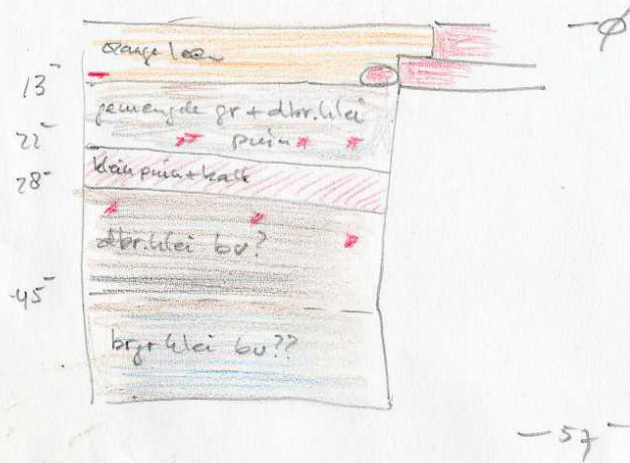 -ø
oranje leem
13-
gemengde gr + dbr.klei
22- puin
klein puin + kalk
28-
dbr.klei bv?
-45-
brgr klei bv??
-57-